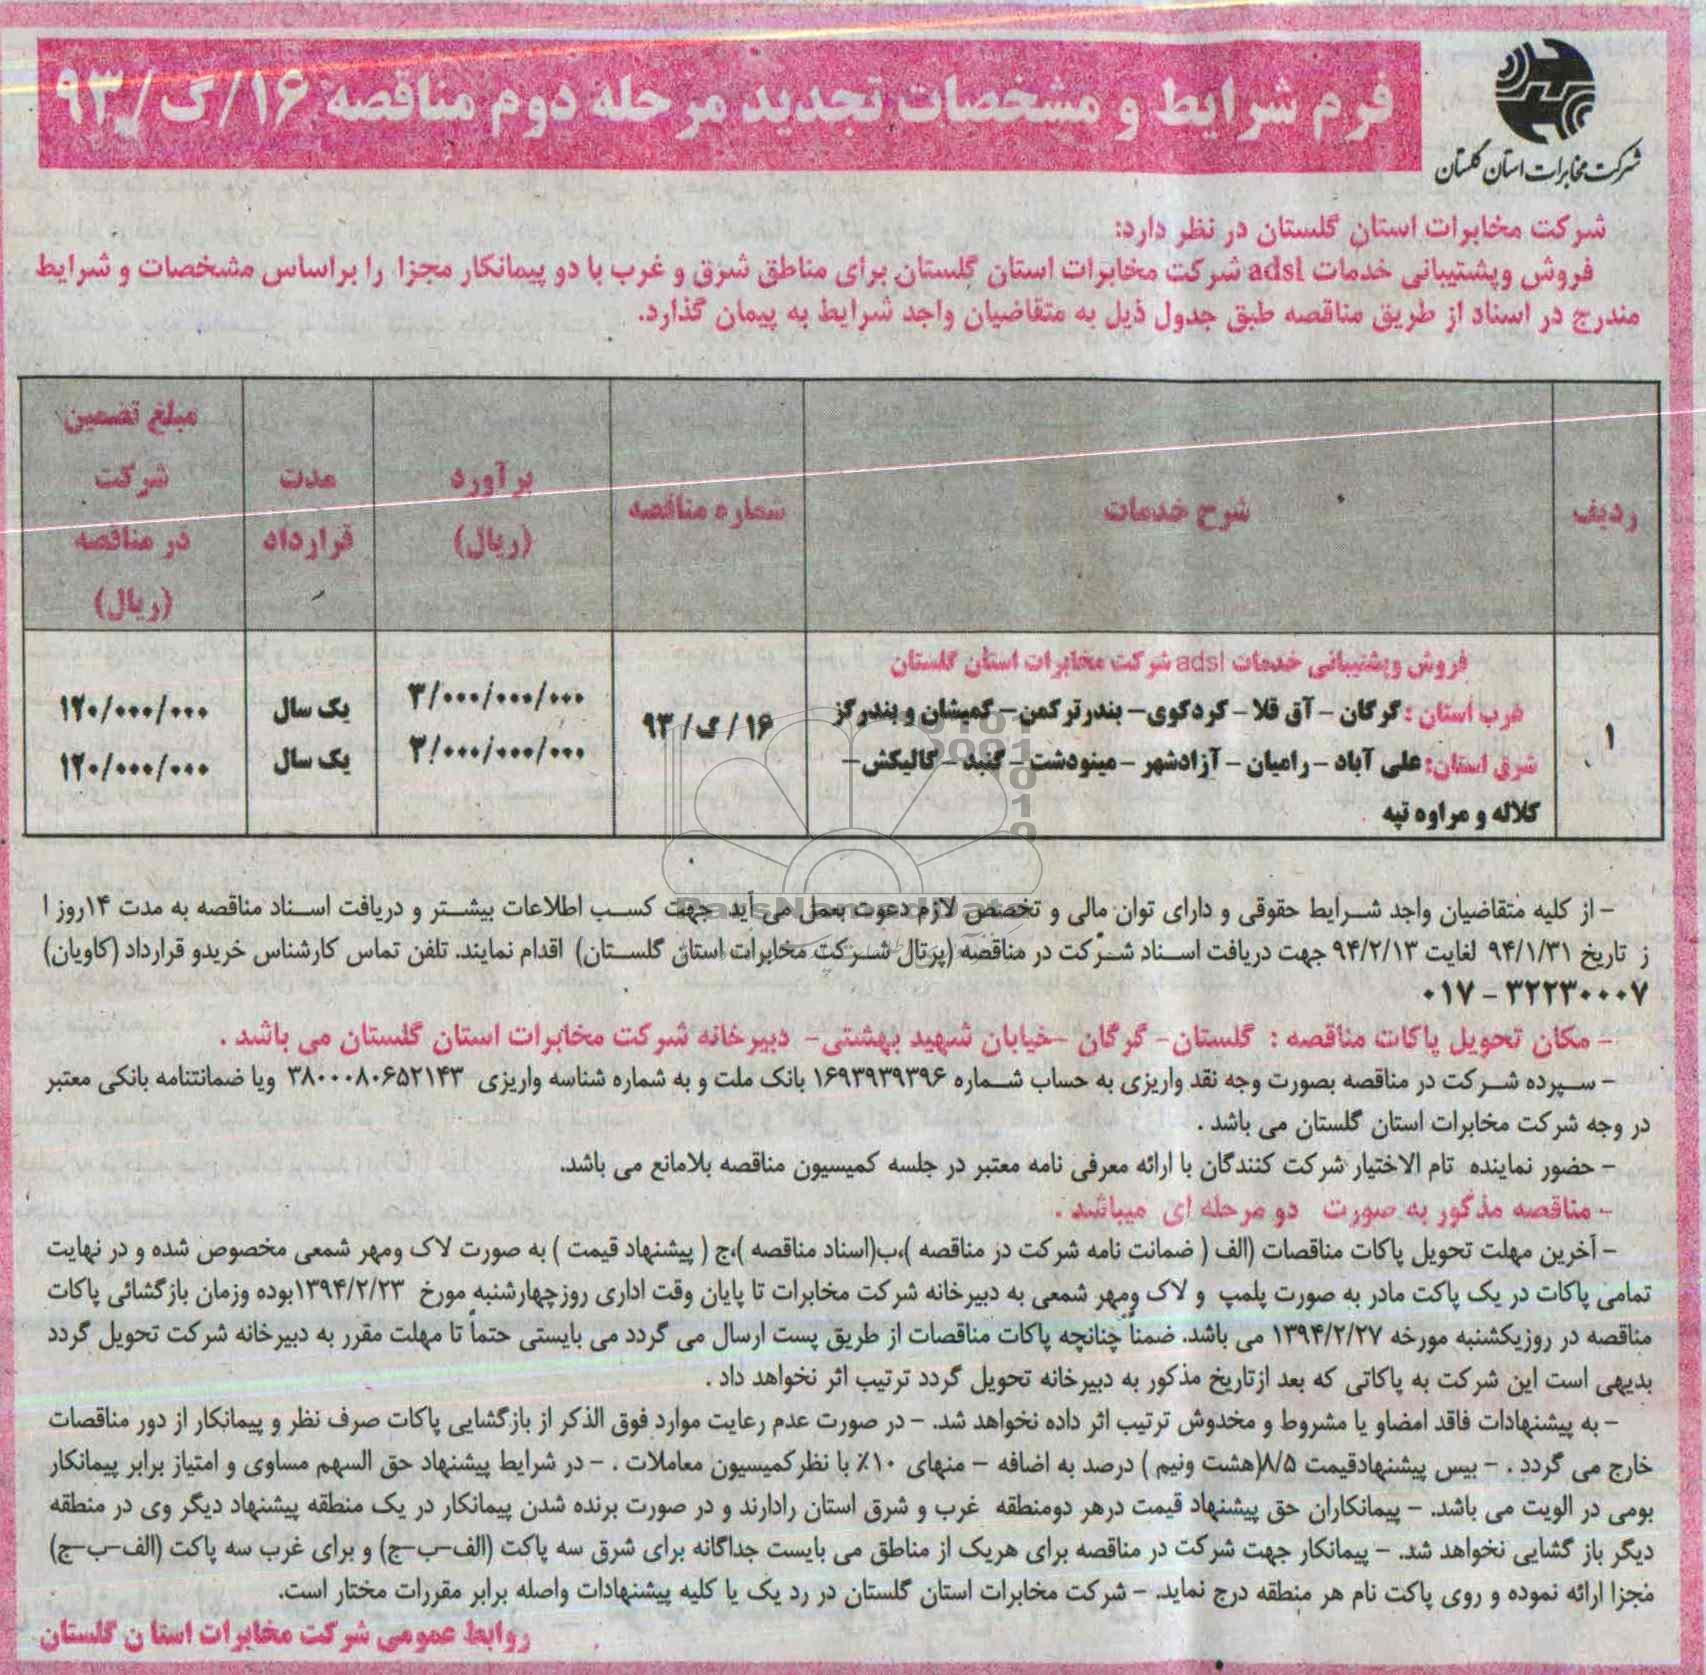 شرکت مخابرات استان گلستان
فرم شرایط و مشخصات تجدید مرحله دوم مناقصه ۱۶/گ/۹۳
شرکت مخابرات استان گلستان در نظر دارد:
فروش وپشتیبانی خدمات adsl شرکت مخابرات استان گلستان برای مناطق شرق و غرب با دو پیمانکار مجزا را براساس مشخصات و شرایط
مندرج در اسناد از طریق مناقصه طبق جدول ذیل به متقاضیان واجد شرایط به پیمان گذارد.
ردیف
شرح خدمات
شماره مناقصه
برآورد
(ریال)
مدت
قرارداد
مبلغ تضمین
شرکت
در مناقصه
(ریال)
۱
فروش وپشتیبانی خدمات adsl شرکت مخابرات استان گلستان
غرب استان : گرگان – آق قلا – کردکوی – بندرترکمن – گمیشان و بندرگز
شرق استان: علی آباد – رامیان – آزادشهر – مینودشت – گنبد – گالیکش –
کلاله و مراوه تپه
۱۶/گ/۹۳
۳/۰۰۰/۰۰۰/۰۰۰
۳/۰۰۰/۰۰۰/۰۰۰
یک سال
یک سال
۱۲۰/۰۰۰/۰۰۰
۱۲۰/۰۰۰/۰۰۰
– از کلیه متقاضیان واجد شرایط حقوقی و دارای توان مالی و تخصص لازم دعوت بعمل می آید جهت کسب اطلاعات بیشتر و دریافت اسناد مناقصه به مدت ۱۴روز ا
ز تاریخ ۹۴/۱/۳۱ لغایت ۹۴/۲/۱۳ جهت دریافت اسناد شرکت در مناقصه (پرتال شرکت مخابرات استان گلستان) اقدام نمایند. تلفن تماس کارشناس خریدو قرارداد (کاویان)
۰۱۷ – ۳۲۲۳۰۰۰۷
– مکان تحویل پاکات مناقصه : گلستان- گرگان -خیابان شهید بهشتی- دبیرخانه شرکت مخابرات استان گلستان می باشد .
– سپرده شرکت در مناقصه بصورت وجه نقد واریزی به حساب شماره ۱۶۹۳۹۳۹۳۹۶ بانک ملت و به شماره شناسه واریزی ۳۸۰۰۰۸۰۶۵۲۱۴۳ ویا ضمانتنامه بانکی معتبر
در وجه شرکت مخابرات استان گلستان می باشد .
– حضور نماینده تام الاختیار شرکت کنندگان با ارائه معرفی نامه معتبر در جلسه کمیسیون مناقصه بلامانع می باشد.
– مناقصه مذکور به صورت دو مرحله ای میباشد .
– آخرین مهلت تحویل پاکات مناقصات (الف ( ضمانت نامه شرکت در مناقصه )،ب(اسناد مناقصه )،ج ( پیشنهاد قیمت ) به صورت لاک ومهر شمعی مخصوص شده و در نهایت
تمامی پاکات در یک پاکت مادر به صورت پلمپ و لاک ومهر شمعی به دبیرخانه شرکت مخابرات تا پایان وقت اداری روزچهارشنبه مورخ ۱۳۹۴/۲/۲۳بوده وزمان بازگشائی پاکات
مناقصه در روزیکشنبه مورخه ۱۳۹۴/۲/۲۷ می باشد. ضمناً چنانچه پاکات مناقصات از طریق پست ارسال می گردد می بایستی حتماً تا مهلت مقرر به دبیرخانه شرکت تحویل گردد
بدیهی است این شرکت به پاکاتی که بعد ازتاریخ مذکور به دبیرخانه تحویل گردد ترتیب اثر نخواهد داد .
– به پیشنهادات فاقد امضاو یا مشروط و مخدوش ترتیب اثر داده نخواهد شد. – در صورت عدم رعایت موارد فوق الذکر از بازگشایی پاکات صرف نظر و پیمانکار از دور مناقصات
خارج می گردد . – بیس پیشنهادقیمت ۸/۵(هشت ونیم ) درصد به اضافه – منهای ۱۰٪ با نظرکمیسیون معاملات . – در شرایط پیشنهاد حق السهم مساوی و امتیاز برابر پیمانکار
بومی در الویت می باشد. – پیمانکاران حق پیشنهاد قیمت درهر دومنطقه غرب و شرق استان رادارند و در صورت برنده شدن پیمانکار در یک منطقه پیشنهاد دیگر وی در منطقه
دیگر باز گشایی نخواهد شد. – پیمانکار جهت شرکت در مناقصه برای هریک از مناطق می بایست جداگانه برای شرق سه پاکت (الف–ب–ج) و برای غرب سه پاکت (الف–ب–ج)
مجزا ارائه نموده و روی پاکت نام هر منطقه درج نماید. – شرکت مخابرات استان گلستان در رد یک یا کلیه پیشنهادات واصله برابر مقررات مختار است.
روابط عمومی شرکت مخابرات استا ن گلستان